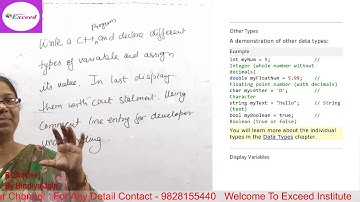 Exceed
Program
Write a C++ and define different
types of variable and assign
its value. In last display
them with cout statment. Using
comment line entry for developer
Other Types
A demonstration of other data types:
Example
int myNum = 5; //
Integer (whole number without
decimals)
double myFloatNum = 5.99; //
Floating point number (with decimals)
char myLetter = 'D'; //
Character
string myText = "Hello"; // String
(text)
bool myBoolean = true; //
Boolean (true or false)
You will learn more about the individual
types in the Data Types chapter.
Display Variables
By Bindiya Jain
ur Channel For Any Detail Contact - 9828155440 Welcome To Exceed Institute